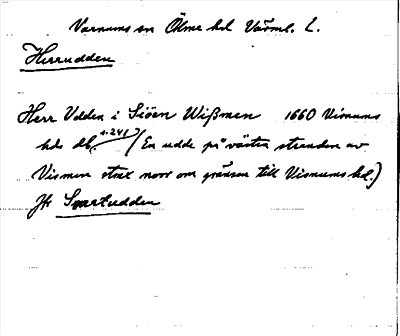 Varnums sn Ölme hd Värml. L.
Herrudden
Herr Udden i Siöen Wißmen 1660 Visnums
hds db, s. 241 (En udde på västra stranden av
Vismen strax norr om gränsen till Visnums hd.)
Jfr Svartudden